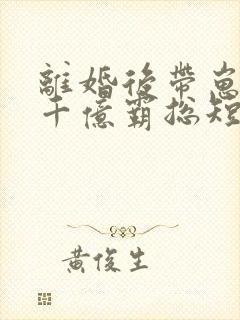 離婚後帶崽
千億霸總短
黃俊生